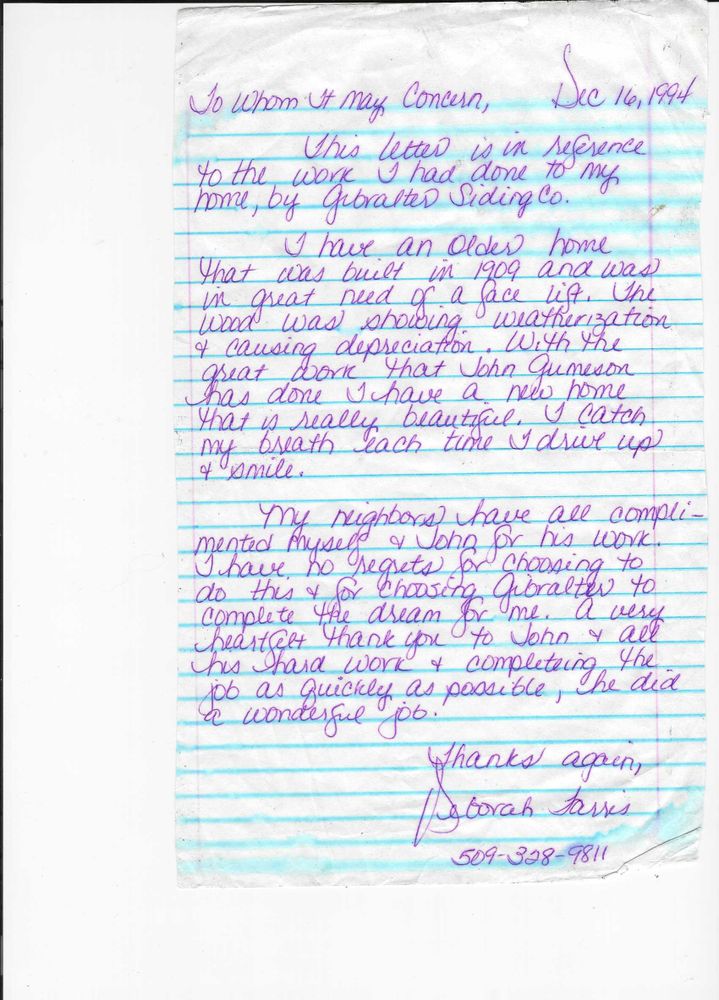 To Whom It May Concern, Dec 16, 1994
This letter is in reference
to the work I had done to my
home, by Gibralter Siding Co.
I have an older home
that was built in 1909 and was
in great need of a face lift. The
wood was showing weatherization
& causing depreciation. With the
great work that John Gumeson
has done I have a new home
that is really beautiful. I catch
my breath each time I drive up
& smile.
My neighbors have all compli-
mented myself & John for his work.
I have no regrets for choosing to
do this & for choosing Gibralter to
complete the dream for me. A very
heartfelt thank you to John & all
his hard work & completeing the
job as quickly as possible, he did
a wonderful job.
Thanks again,
Deborah Farris
509-328-9811